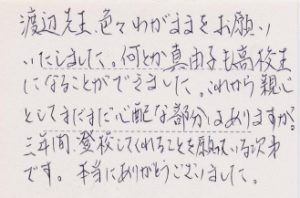 渡辺先生、色々わがままをお願い
いたしました。何とか真由子も高校生
になることができました。これから親心
としてまだまだ心配な部分はありますが、
三年間、登校してくれることを願っている次第
です。本当にありがとうございました。